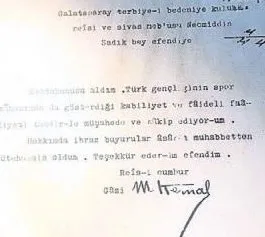 Galatasaray terbiye-i bedeniye kulübü
reisi ve sivas meb'usu Necmiddin
Sadık bey efendiye
aldım .Türk gençliğinin spor
da göst-rdiği kabiliyet ve fâideli faâ-
müşahede ve takip ediyor-um .
Hakkımda ibraz buyurulan muhabbetten
oldum . Teşekkür eder-im efendim .
Reis-i cumhur
Gâzi M. Kemal